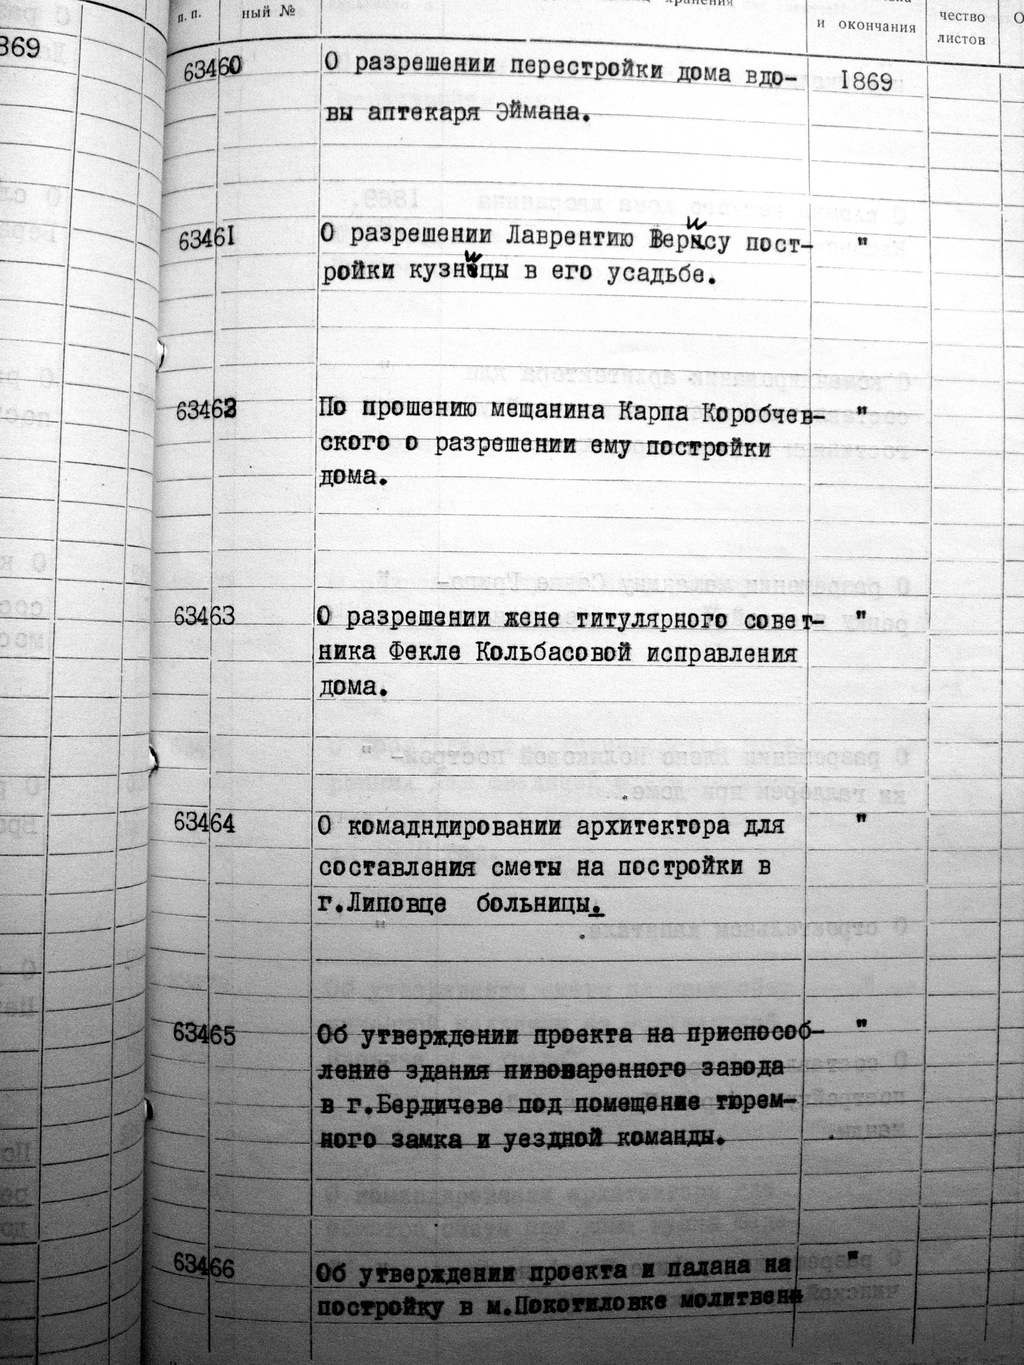 п. п.
ный №
хранения
и окончания
чество
листов
О
869
63460 О разрешении перестройки дома вдо- 1869
вы аптекаря Эймана.
63461 О разрешении Лаврентию Вериcу пост- "
ройки кузницы в его усадьбе.
63462 По прошению мещанина Карпа Коробчев- "
ского о разрешении ему постройки
дома.
63463 О разрешении жене титулярного совет- "
ника Фекле Кольбасовой исправления
дома.
63464 О комадндировании архитектора для "
составления сметы на постройки в
г.Липовце больницы.
63465 Об утверждении проекта на приспособ- "
ление здания пивоваренного завода
в г.Бердичеве под помещение тюрем-
ного замка и уездной команды.
63466 Об утверждении проекта и палана на "
постройку в м.Покотиловке молитвенн